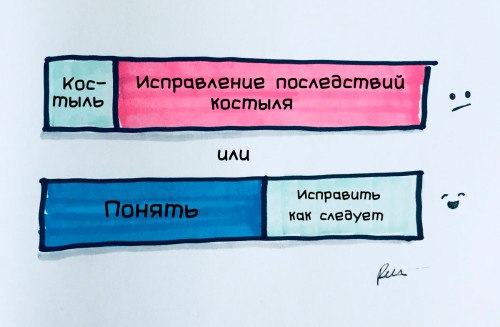 Кос-
тыль
Исправление последствий
костыля
или
Понять
Исправить
как следует